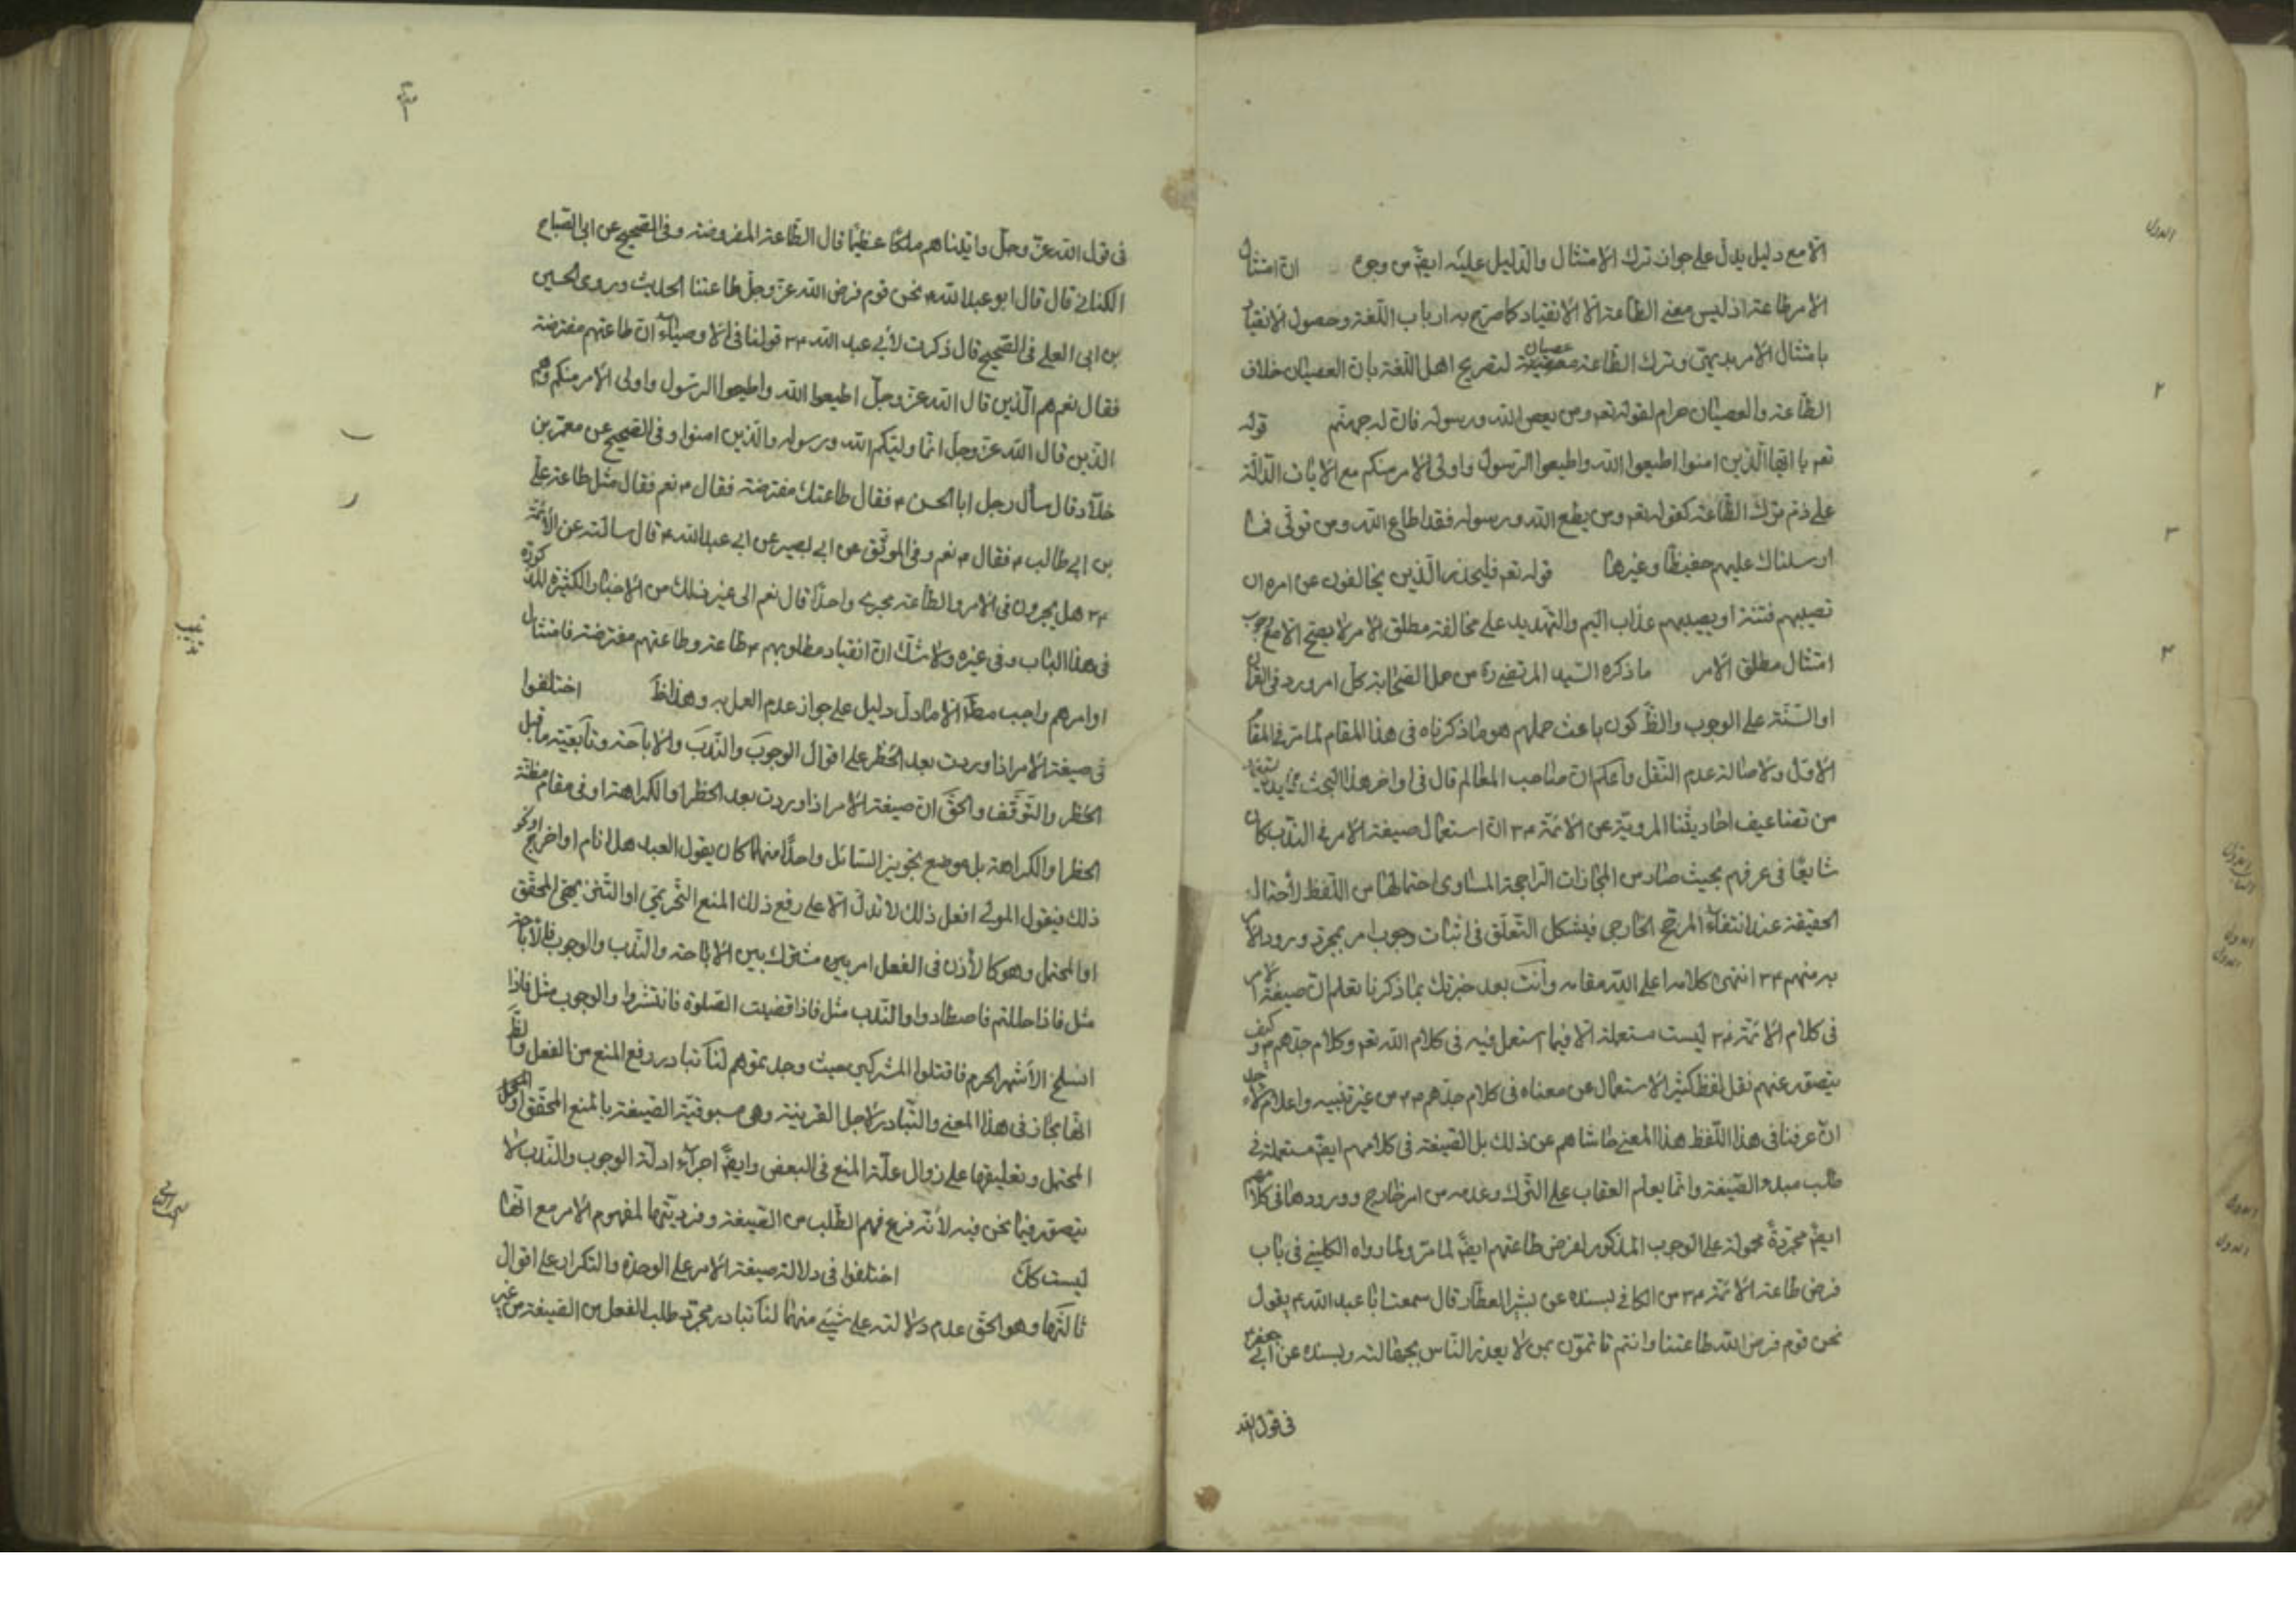 الا مع دليل يدل على جواز ترك الامتثال والدليل عليه ايضّ من وجوه ان امتثال
الامر طاعة اذ ليس معنى الطاعة الا الانقياد كما صرح به ارباب اللغة وحصول الانقياد
بامتثال الامر بديهي وترك الطاعة عصيان لتصريح اهل اللغة بان العصيان خلاف
الطاعة والعصيان حرام لقوله تعم ومن يعص الله ورسوله فان له جهنم قوله
تعم يا ايها الذين امنوا اطيعوا الله واطيعوا الرسول واولى الامر منكم مع الايات الدالة
على ذم ترك الطاعة كقوله تعم ومن يطع الله ورسوله فقد اطاع الله ومن تولى فما
ارسلناك عليهم حفيظا وغيرها قوله تعم فليحذر الذين يخالفون عن امره ان
تصيبهم فتنة او يصيبهم عذاب اليم والتهديد على مخالفة مطلق الامر لا يصح الا مع وجوب
امتثال مطلق الامر ما ذكره السيد المرتضى ره من حمل الصحابة كل امر ورد في القران
او السنة على الوجوب والظّ كون باعث حملهم هو ما ذكرناه في هذا المقام لما مر في المقام
الاول ولاصالة عدم النقل واعلم ان صاحب المعالم قال في اواخر هذا المبحث
من تضاعيف احاديثنا المروية عن الائمة ٤٣ ان استعمال صيغة الامر في الندب كان
شايعا في عرفهم بحيث صار من المجازات الراجحة المساوي احتمالها من اللفظ لاحتمال
الحقيقة عند انتفاء المرجح الخارجي فيشكل التعلق في اثبات وجوب امر بمجرد ورود الامر
به منهم ٤٣ انتهى كلامه اعلى الله مقامه وانت بعد خبرتك بما ذكرنا تعلم ان صيغة الامر
في كلام الائمة ٤٣ ليست مستعملة الا فيما استعمل فيه في كلام الله تعم وكلام جدهم ٤ وكيف
يتصور عنهم نقل لفظ كثير الاستعمال عن معناه في كلام جدهم ٤٣ من غير تنبيه واعلام
ان عرفنا في هذا اللفظ هذا المعنى حاشاهم عن ذلك بل الصيغة في كلامهم ايضّ مستعملة في
طلب مبدء الصيغة وانما يعلم العقاب على الترك وعدمه من امر خارج وورودها في كلامهم
ايضّ مجردة محمولة على الوجوب المذكور لفرض طاعتهم ايضّ لما مر ولما رواه الكليني في باب
فرض طاعة الائمة ٤٣ من الكافي بسنده عن بشير العطار قال سمعت ابا عبد الله ٤ يقول
نحن قوم فرض الله طاعتنا وانتم تأتمون بمن لا يعذر الناس بجهالته وبسنده عن ابي جعفر
في قول الله
في قول الله عز وجل واتيناهم ملكا عظيما قال الطاعة المفروضة وفي الصحيح عن ابي الصباح
الكناني قال قال ابو عبد الله ٤ نحن قوم فرض الله عز وجل طاعتنا الحديث وروى الحسين
بن ابي العلى في الصحيح قال ذكرت لأبي عبد الله ٤٣ قولنا في الاوصياء ان طاعتهم مفترضة
فقال نعم هم الذين قال الله عز وجل اطيعوا الله واطيعوا الرسول واولى الامر منكم وهم
الذين قال الله عز وجل انما وليكم الله ورسوله والذين امنوا وفي الصحيح عن معمر بن
خلاد قال سأل رجل ابا الحسن ٤ فقال طاعتك مفترضة فقال ٤ نعم فقال مثل طاعة علي
بن ابي طالب ٤ فقال ٤ نعم وفي الموثق عن ابي بصير عن ابي عبد الله ٤ قال سالته عن الأئمة
٤٣ هل يجرون في الامر والطاعة مجرى واحدا قال نعم الى غير ذلك من الاخبار الكثيرة المذكورة
في هذا الباب وفي غيره ولا شك ان انقياد مطلوبهم ٤ طاعة وطاعتهم مفترضة فامتثال
اوامرهم واجب مطّ الا ما دل دليل على جواز عدم العمل به وهذا ظّ اختلفوا
في صيغة الامر اذا وردت بعد الحظر على اقوال الوجوب والندب والاباحة وتابعيته ما قبل
الحظر والتوقف والحق ان صيغة الامر اذا وردت بعد الحظر او الكراهة او في مقام مظنة
الحظر او الكراهة بل موضع تجويز السائل واحدا منهما كان يقول العبد هل انام او اخرج او نحو
ذلك فيقول المولى افعل ذلك لا تدل الا على رفع ذلك المنع التحريمي او التنزيهي المحقق
او المحتمل وهو كالأذن في الفعل امر بين مشترك بين الاباحة والندب والوجوب فالاباحة
مثل فاذا حللتم فاصطادوا والندب مثل فاذا قضيت الصلوة فانتشروا والوجوب مثل فاذا
انسلخ الأشهر الحرم فاقتلوا المشركين حيث وجدتموهم لنا تبادر رفع المنع من الفعل والظّ
انها مجاز في هذا المعنى والتبادر لاجل القرينة وهي مسبوقية الصيغة بالمنع المحقق او
المحتمل وتعليقها على زوال علة المنع في البعض وايضّ اجراء ادلة الوجوب والندب لا
يتصور فيما نحن فيه لأنه فرع فهم الطلب من الصيغة وفرديتها لمفهوم الامر مع انها
ليست كك اختلفوا في دلالة صيغة الامر على الوحدة والتكرار على اقوال
ثالثها وهو الحق عدم دلالته على شيئ منهما لنا تبادر مجرد طلب الفعل من الصيغة من غير